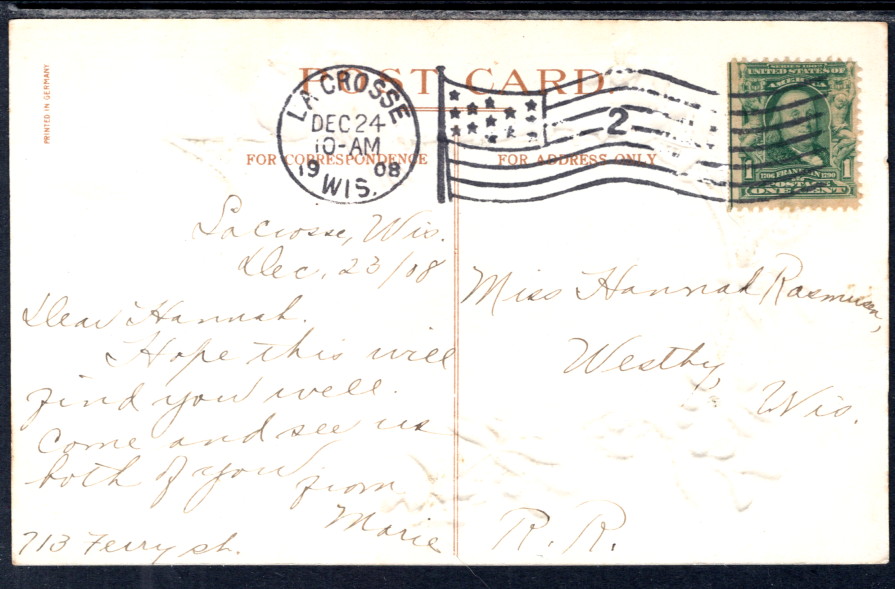 PRINTED IN GERMANY
POST CARD
LA CROSSE
DEC 24
10-AM
1908
WIS.
2
UNITED STATES OF
AMERICA
1706 FRANKLIN 1790
1 POSTAGE 1
ONE CENT
FOR CORRESPONDENCE
FOR ADDRESS ONLY
LaCrosse, Wis.
Dec. 23/08
Dear Hannah.
Hope this will
find you well.
Come and see us
both of you
from
Marie
713 Ferry st.
Miss Hannah Rasmusen,
Westby,
Wis.
R. R.